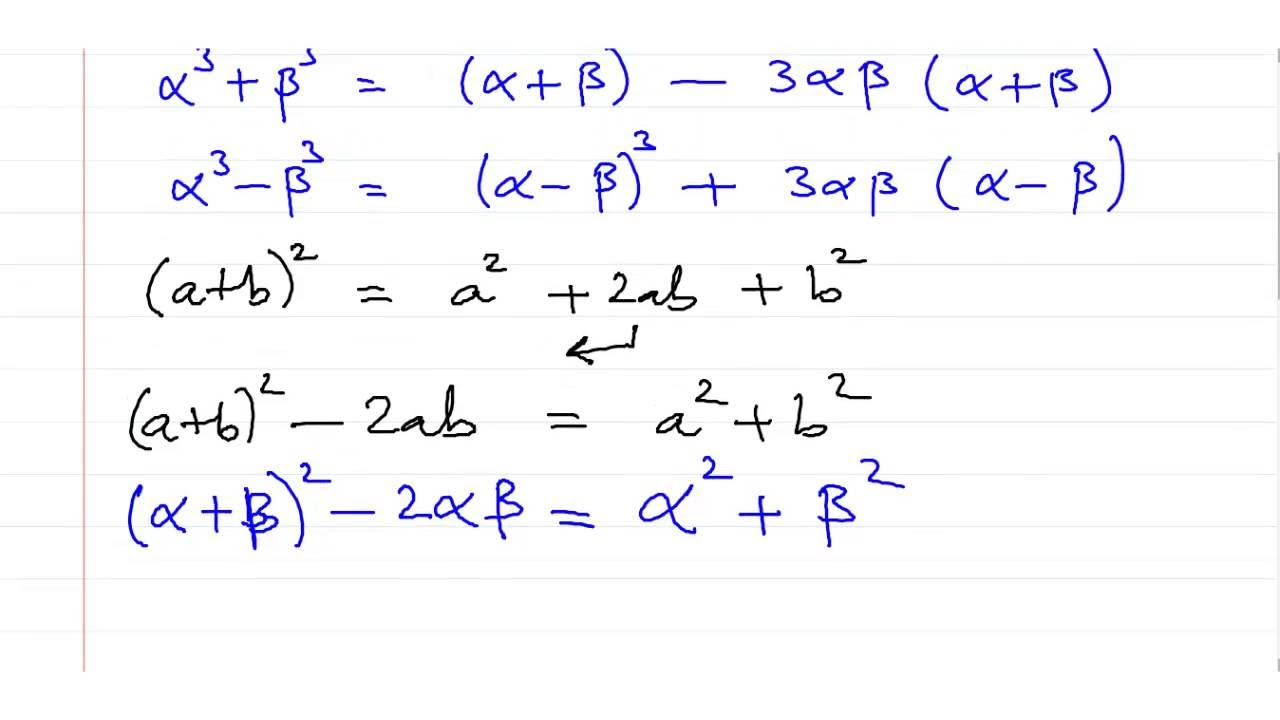 α³ + β³ = (α + β) − 3αβ (α + β)
α³ − β³ = (α − β)³ + 3αβ (α − β)
(a+b)² = a² + 2ab + b²
(a+b)² − 2ab = a² + b²
(α + β)² − 2αβ = α² + β²